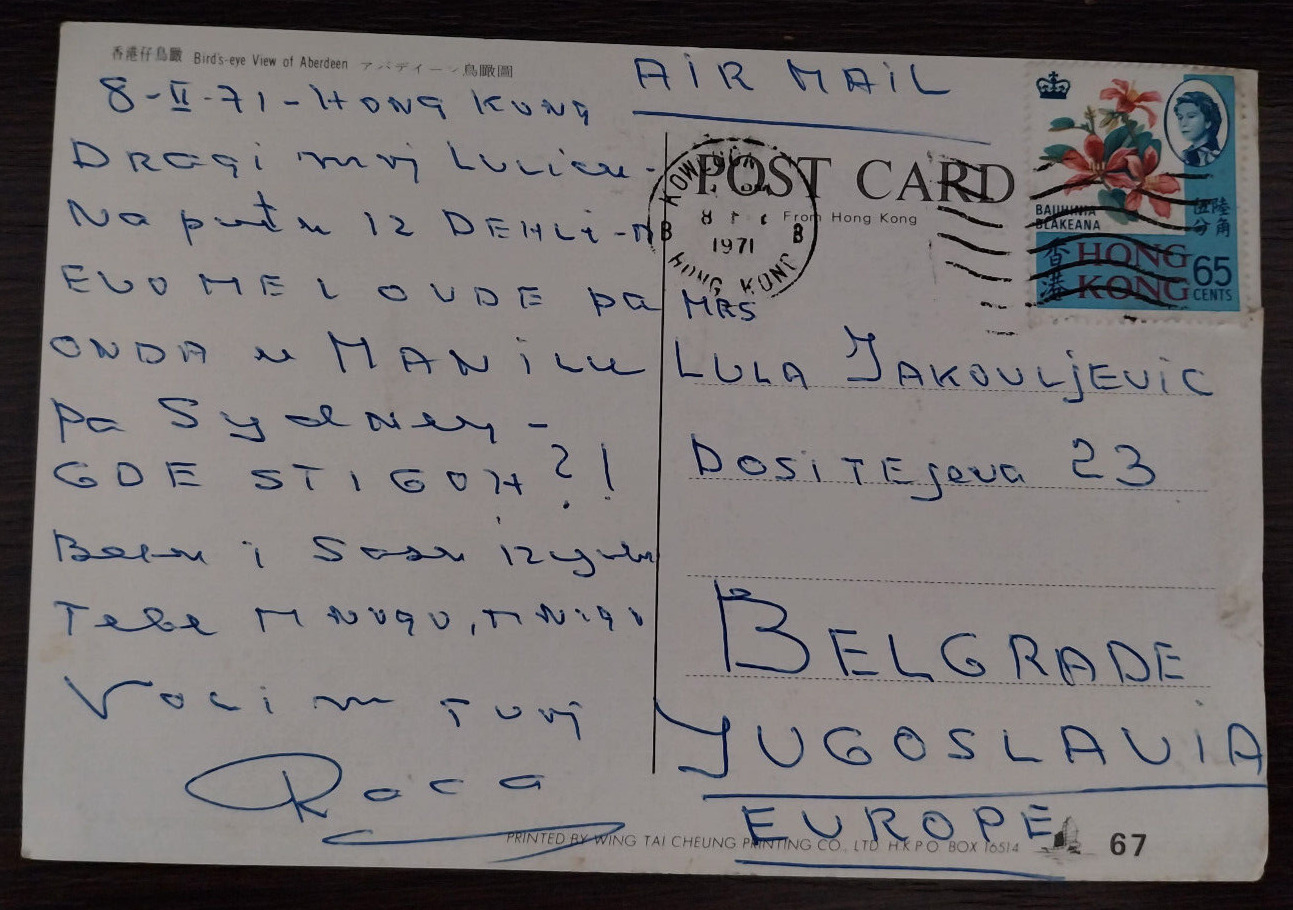 香港仔鳥瞰 Bird's-eye View of Aberdeen アバディーン鳥瞰圖
8-II-71-HONG KONG
DRAGI moj LULICU-
Na putu 12 DEHLi-
EVO ME I OVDE pa
ONDA u MANiLU
pa Sydney-
GDE STIGOH?!
i
Tebe MNOGO, MNOGO
Voli
TVOJ
AiR MAiL
POST CARD
From Hong Kong
KOWLOON
B 8 B
1971
HONG KONG
BAUHINIA
BLAKEANA
伍陸
分角
香港
HONG
KONG
65
CENTS
MRS
LULA JAKOVLjEVIC
DOSiTEjeva 23
BELGRADE
YUGOSLAVIA
EUROPE
PRINTED BY WING TAI CHEUNG PRINTING CO., LTD. H.K.P.O. BOX 16514
67